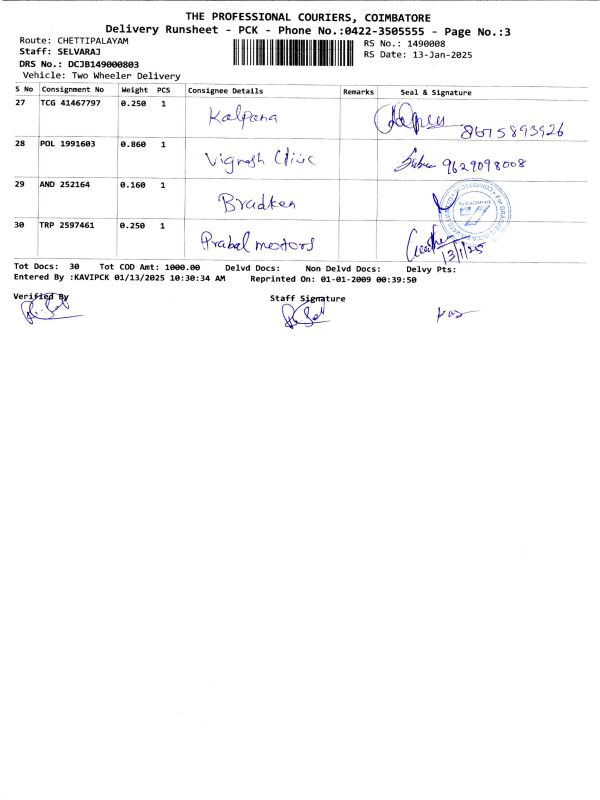 THE PROFESSIONAL COURIERS, COIMBATORE
Delivery Runsheet - PCK - Phone No.:0422-3505555 - Page No.:3
Route: CHETTIPALAYAM
RS No.: 1490008
Staff: SELVARAJ
RS Date: 13-Jan-2025
DRS No.: DCJB149000803
Vehicle: Two Wheeler Delivery
S No Consignment No Weight PCS Consignee Details Remarks Seal & Signature
27 TCG 41467797 0.250 1 Kalpana 8675893926
28 POL 1991603 0.860 1 Vignesh Clinic 9629098008
29 AND 252164 0.160 1 Bradken
30 TRP 2597461 0.250 1 Prabal motors 13/1/25
Tot Docs: 30 Tot COD Amt: 1000.00 Delvd Docs: Non Delvd Docs: Delvy Pts:
Entered By :KAVIPCK 01/13/2025 10:30:34 AM Reprinted On: 01-01-2009 00:39:50
Verified By Staff Signature